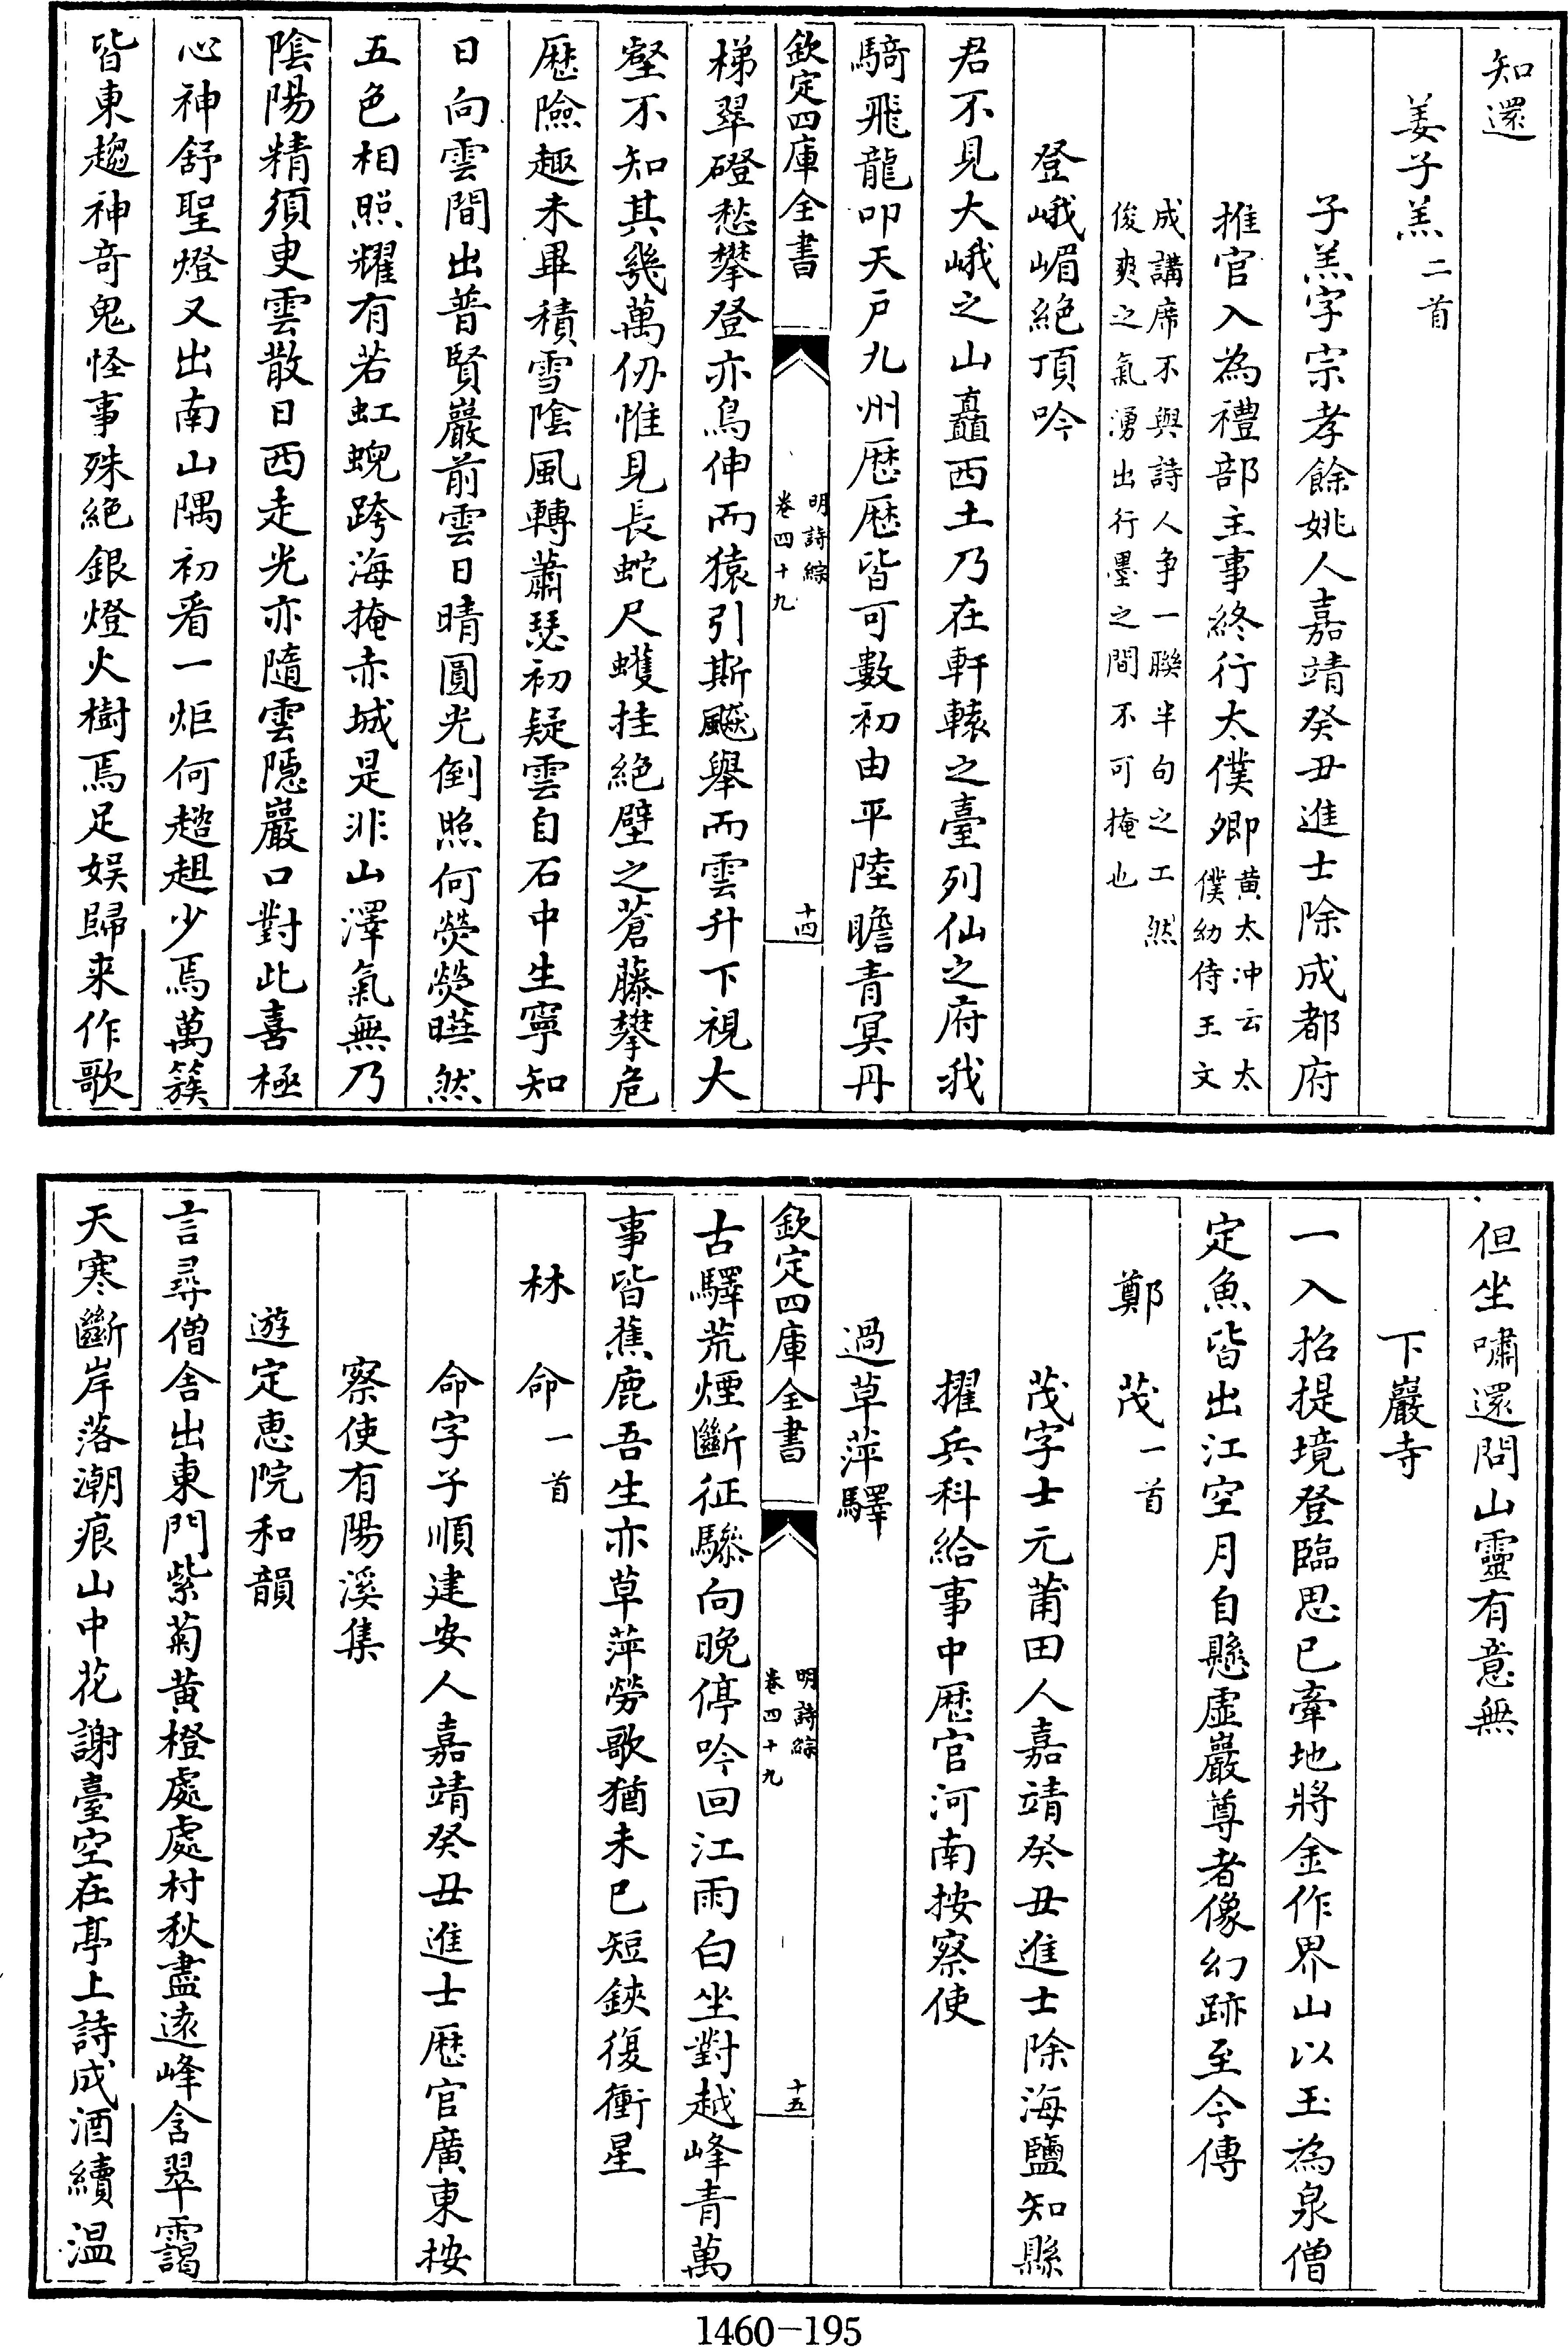 知還
姜子羔二首
子羔字宗孝餘姚人嘉靖癸丑進士除成都府
推官入為禮部主事終行太僕卿黄太冲云太
僕幼侍王文
成講席不與詩人争一聯半句之工然
俊爽之氣湧出行墨之間不可掩也
登峨嵋絶頂吟
君不見大峨之山矗西土乃在軒轅之臺列仙之府我
騎飛龍叩天户九州歴歴皆可數初由平陸瞻青冥丹
欽定四庫全書
明詩綜
卷四十九
十四
梯翠磴愁攀登亦鳥伸而猿引斯飈舉而雲升下視大
壑不知其幾萬仞惟見長蛇尺蠖挂絶壁之蒼藤攀危
歴險趣未畢積雪陰風轉蕭瑟初疑雲自石中生寧知
日向雲間出普賢巖前雲日晴圓光倒照何熒熒曄然
五色相照耀有若虹蜺跨海掩赤城是非山澤氣無乃
陰陽精須更雲散日西走光亦隨雲隠巖口對此喜極
心神舒聖燈又出南山隅初看一炬何趦趄少焉萬簇
皆東趨神奇鬼怪事殊絶銀燈火樹焉足娱歸来作歌
但坐嘯還問山靈有意無
下巖寺
一入招提境登臨思已牽地將金作界山以玉為泉僧
定魚皆出江空月自懸虚巖尊者像幻跡至今傳
鄭茂一首
茂字士元莆田人嘉靖癸丑進士除海鹽知縣
擢兵科給事中歴官河南按察使
過草萍驛
欽定四庫全書
明詩綜
卷四十九
十五
古驛荒煙斷征驂向晚停吟回江雨白坐對越峰青萬
事皆蕉鹿吾生亦草萍勞歌猶未已短鋏復衝星
林命一首
命字子順建安人嘉靖癸丑進士歴官廣東按
察使有陽溪集
遊定惠院和韻
言尋僧舍出東門紫菊黄橙處處村秋盡遠峰含翠靄
天寒斷岸落潮痕山中花謝臺空在亭上詩成酒續温
1460-195